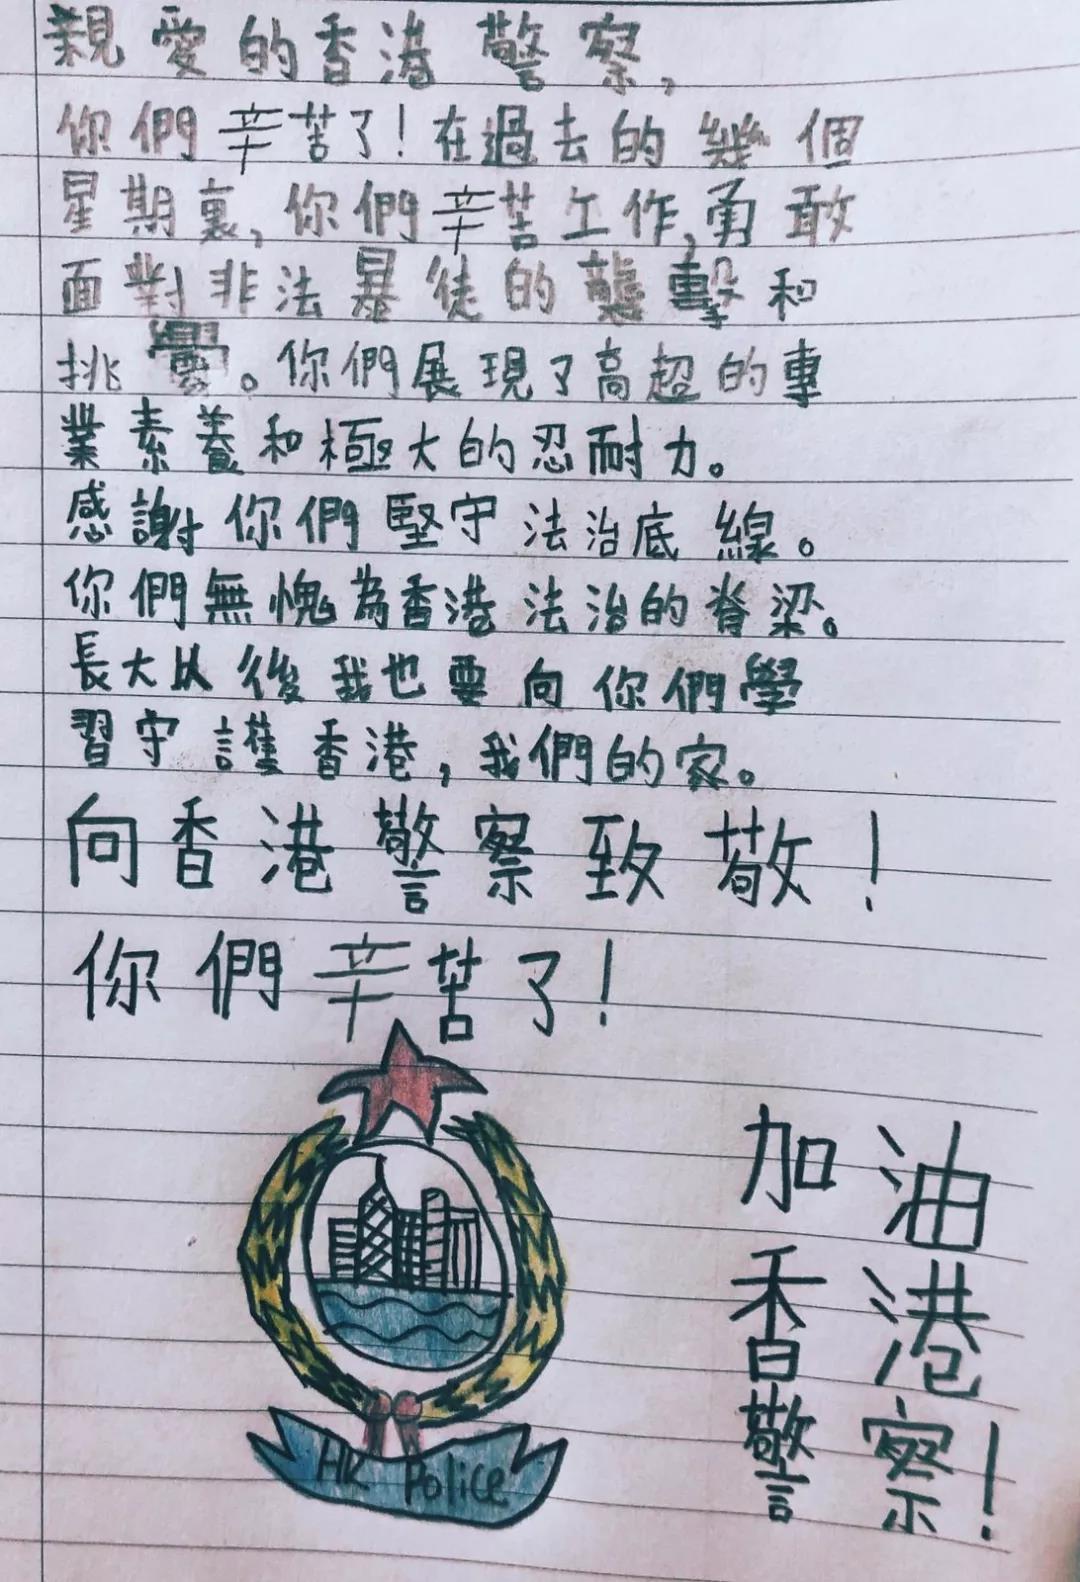 親愛的香港警察,
你們辛苦了!在過去的幾個
星期裏,你們辛苦工作,勇敢
面對非法暴徒的襲擊和
挑釁。你們展現了高超的專
業素養和極大的忍耐力。
感謝你們堅守法治底線。
你們無愧為香港法治的脊梁。
長大以後我也要向你們學
習守護香港,我們的家。
向香港警察致敬!
你們辛苦了!
加油
香港
警察!
HK Police